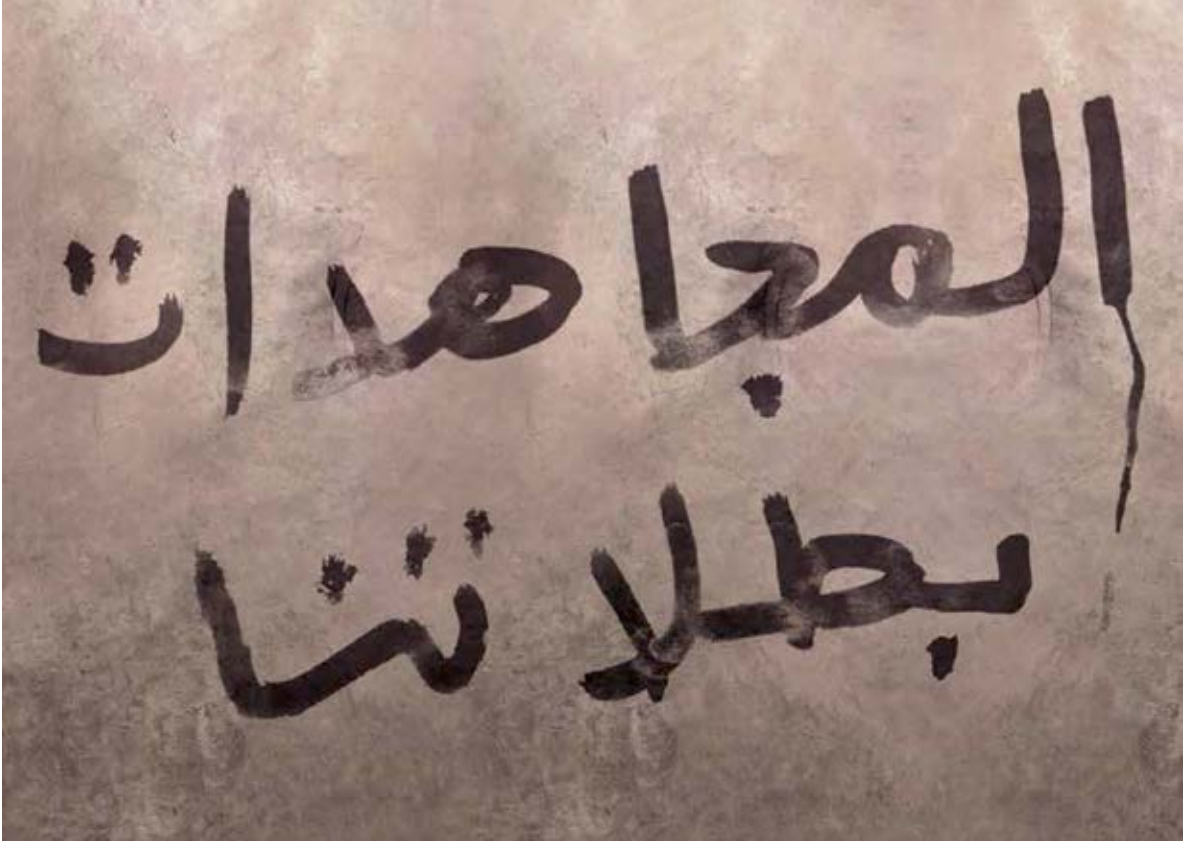 المجاهدات
بطلاتنا